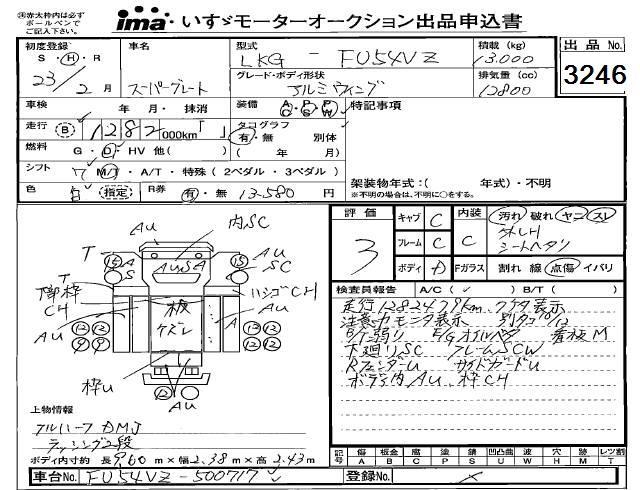 ※赤太枠内は必ずボールペンでご記入下さい。
ima・いすゞモーターオークション出品申込書
初度登録 S・H・R 23年 2月
車名 スーパーグレート
型式 LKG - FU54VZ
積載 (kg) 13.000
出品 No.
3246
グレード・ボディ形状 アルミウイング
排気量 (cc) 12800
車検 年 月・抹消
装備 A/C・P/S・P/W
特記事項
走行 B 1282 000km「 」
タコグラフ 有・無 別体
燃料 G・D・HV 他( )
( 年 月)
シフト 7 MT・A/T・特殊(2ペダル・3ペダル)
架装物年式:( 年式)・不明
※不明の場合は、不明に○をする。
色 白 指定 R券 有・無 13-580 円
評価 3
キャブ C
フレーム C
ボディ D
内装 C
汚れ 破れ ヤニ スレ
シートヘタリ
Fガラス 割れ 線 点傷 イバリ
AU 内SC
T 15 A 15 AU
AU SA SC
T
下部枠 CH
板 ケズレ
ハシゴCH
AU A AU
12 12 12 12
9 9 12 12
枠U
12 12
AU
検査員報告 A/C( ) B/T( )
走行128247.9km
注意カモニタ表示
B/T弱り E/Gオイル 看板M
下廻りSC フレームSCW
RフェンダーU サイドガードU
ボデー内AU、枠CH
上物情報
アルハーフ DMJ
ラッシング2段
ボディ内寸約 長9.60m×幅2.38m×高2.43m
記号 傷A 板金B 腐C 塗P 錆S 凹凸曲U 波W 穴H 跡M レツ割T
車台No. FU54VZ-500717
登録No.